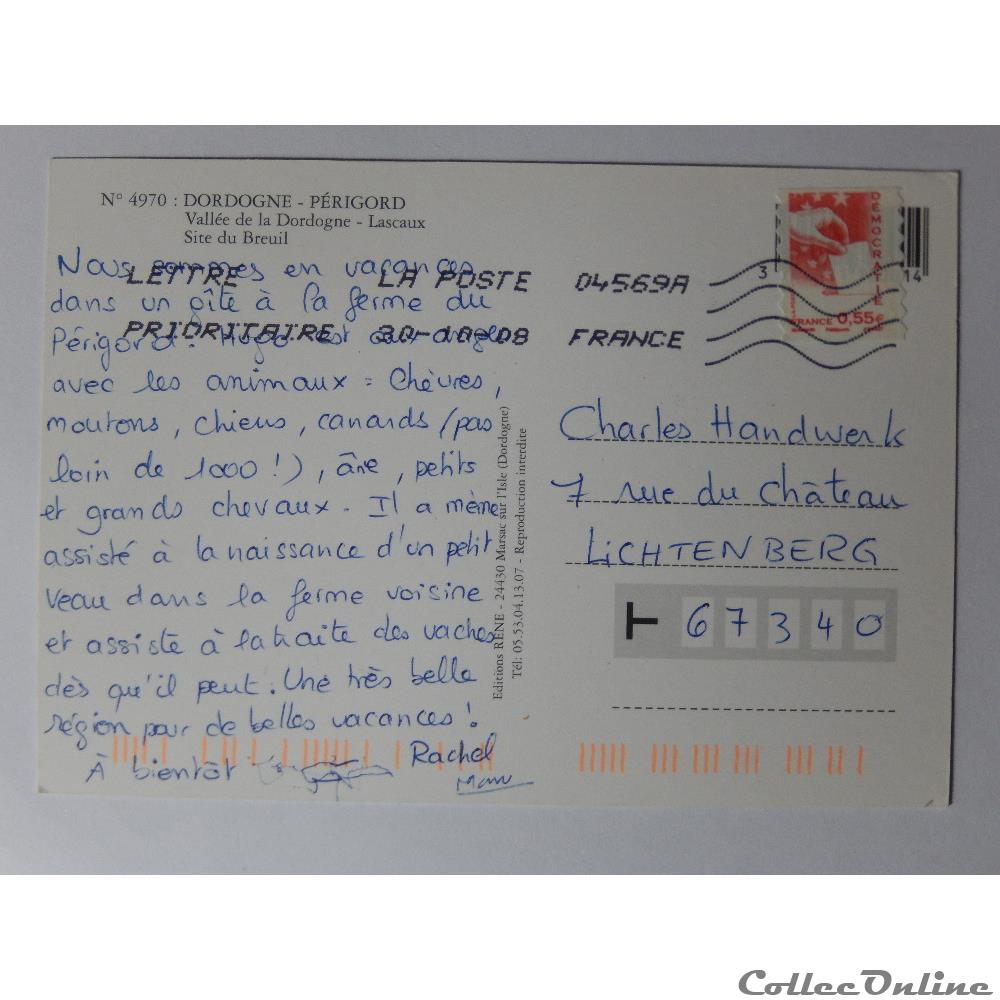 N° 4970 : DORDOGNE - PÉRIGORD
Vallée de la Dordogne - Lascaux
Site du Breuil
Nous sommes en vacances
dans un gîte à la ferme du
Périgord. Hugo est aux anges
avec les animaux : Chèvres,
moutons, chiens, canards (pas
loin de 1000 !), âne, petits
et grands chevaux. Il a même
assisté à la naissance d'un petit
veau dans la ferme voisine
et assiste à la traite des vaches
dès qu'il peut. Une très belle
région pour de belles vacances !
À bientôt
Rachel
Manu
LETTRE LA POSTE 04569A
PRIORITAIRE 30-10-08 FRANCE
3
14
DÉMOCRATIE
FRANCE 0,55€
Editions RENÉ - 24430 Marsac sur l'Isle (Dordogne)
Tél: 05.53.04.13.07 - Reproduction interdite
Charles Handwerk
7 rue du château
LICHTENBERG
67340
CollecOnline